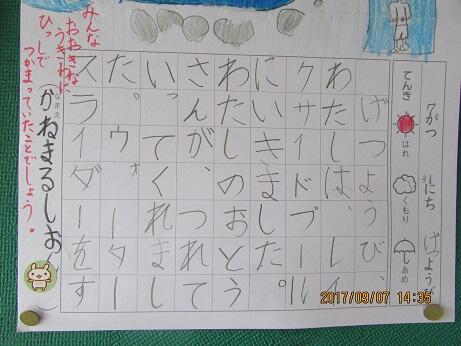 7がつ 31にち げつようび
てんき はれ くもり あめ
げつようび、
わたしは、レイ
クサイドプール
にいきました。
わたしのおとう
さんが、つれて
いってくれまし
た。ウォーター
スライダーをす
(なまえ かねまるしおん)
みんな
おおきな
うきわに
ひっしで
つかまっていたことでしょう。
2017/09/07 14:35